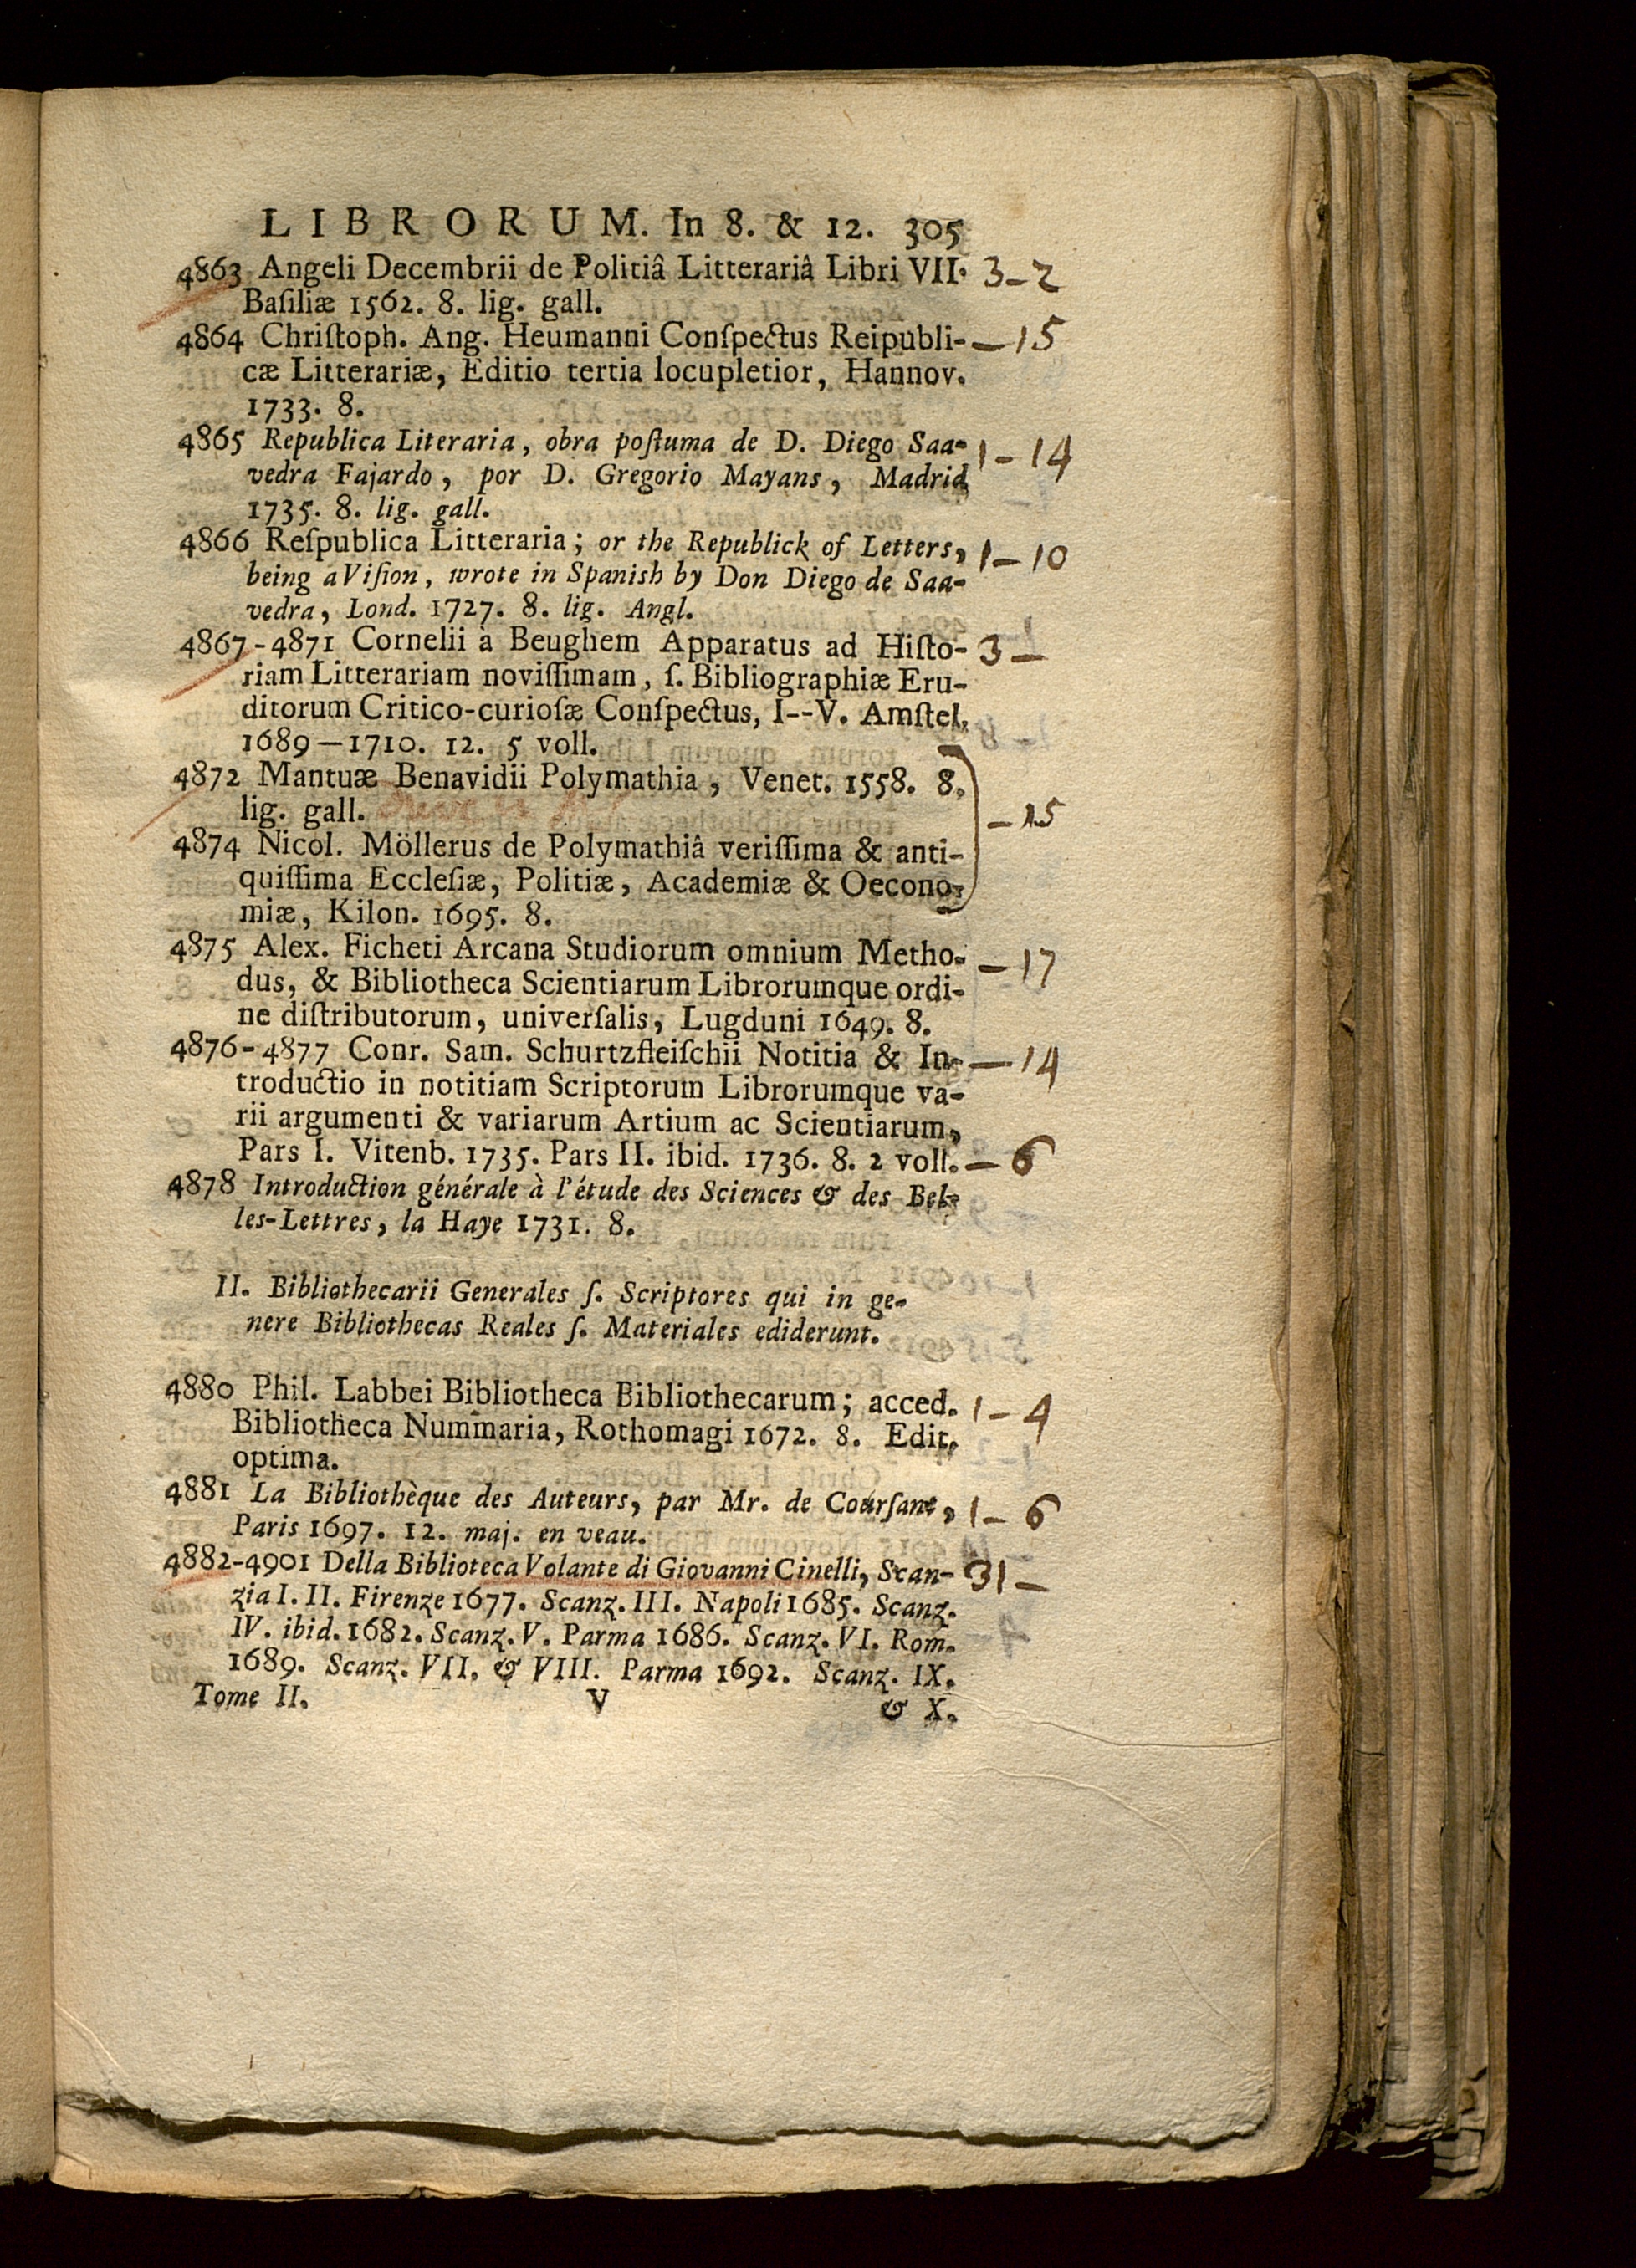 LIBRORUM. In 8. & 12. 305
4863 Angeli Decembrii de Politiâ Litterariâ Libri VII. 3-2
Baſiliæ 1562. 8. lig. gall.
4864 Chriſtoph. Ang. Heumanni Conſpectus Reipubli- —15
cæ Litterariæ, Editio tertia locupletior, Hannov.
1733. 8.
4865 Republica Literaria, obra poſtuma de D. Diego Saa- 1-14
vedra Fajardo, por D. Gregorio Mayans, Madrid
1735. 8. lig. gall.
4866 Reſpublica Litteraria; or the Republick of Letters, 1-10
being a Viſion, wrote in Spanish by Don Diego de Saa-
vedra, Lond. 1727. 8. lig. Angl.
4867-4871 Cornelii à Beughem Apparatus ad Hiſto- 3-
riam Litterariam noviſſimam, ſ. Bibliographiæ Eru-
ditorum Critico-curioſæ Conſpectus, I--V. Amſtel.
1689—1710. 12. 5 voll.
4872 Mantuæ Benavidii Polymathia, Venet. 1558. 8.
lig. gall. -15
4874 Nicol. Möllerus de Polymathiâ veriſſima & anti-
quiſſima Eccleſiæ, Politiæ, Academiæ & Oecono-
miæ, Kilon. 1695. 8.
4875 Alex. Ficheti Arcana Studiorum omnium Metho- -17
dus, & Bibliotheca Scientiarum Librorumque ordi-
ne diſtributorum, univerſalis, Lugduni 1649. 8.
4876-4877 Conr. Sam. Schurtzfleiſchii Notitia & In- —14
troductio in notitiam Scriptorum Librorumque va-
rii argumenti & variarum Artium ac Scientiarum,
Pars I. Vitenb. 1735. Pars II. ibid. 1736. 8. 2 voll. —6
4878 Introduction générale à l'étude des Sciences & des Bel-
les-Lettres, la Haye 1731. 8.
II. Bibliothecarii Generales ſ. Scriptores qui in ge-
nere Bibliothecas Reales ſ. Materiales ediderunt.
4880 Phil. Labbei Bibliotheca Bibliothecarum; acced. 1-4
Bibliotheca Nummaria, Rothomagi 1672. 8. Edit.
optima.
4881 La Bibliothèque des Auteurs, par Mr. de Courſant, 1-6
Paris 1697. 12. maj. en veau.
4882-4901 Della Biblioteca Volante di Giovanni Cinelli, Scan- 31-
zia I. II. Firenze 1677. Scanz. III. Napoli 1685. Scanz.
IV. ibid. 1682. Scanz. V. Parma 1686. Scanz. VI. Rom.
1689. Scanz. VII. & VIII. Parma 1692. Scanz. IX.
Tome II. V & X.